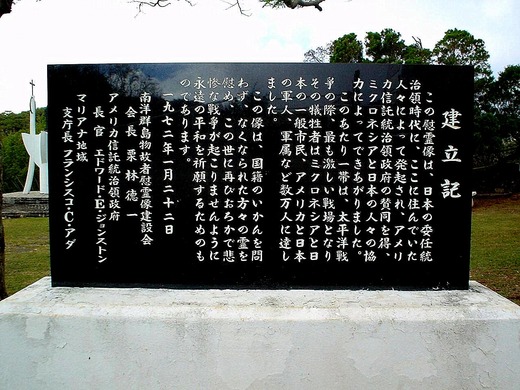 建立記
この慰霊像は、日本の委任統
治領時代に、ここに住んでいた
人々によって発起され、アメリ
カ信託統治領政府の賛同を得、
ミクロネシアと日本の人々の協
力によってできあがりました。
このあたり一帯は、太平洋戦
争の際、最も激しい戦場となり
その犠牲者はミクロネシアと日
本の一般市民、アメリカと日本
の軍人、軍属など数万人に達し
ました。
この像は、国籍のいかんを問
わず、なくなられた方々の霊を
慰め、この世に再びおろかで悲
惨な戦争が起こりませんように
永遠の平和を祈願するためのも
のであります。
一九七二年一月二十二日
南洋群島物故者慰霊像建設会
会長 栗林徳一
アメリカ信託統治領政府
長官 エドワード・E・ジョンストン
マリアナ地域
支庁長 フランシスコ・C・アダ